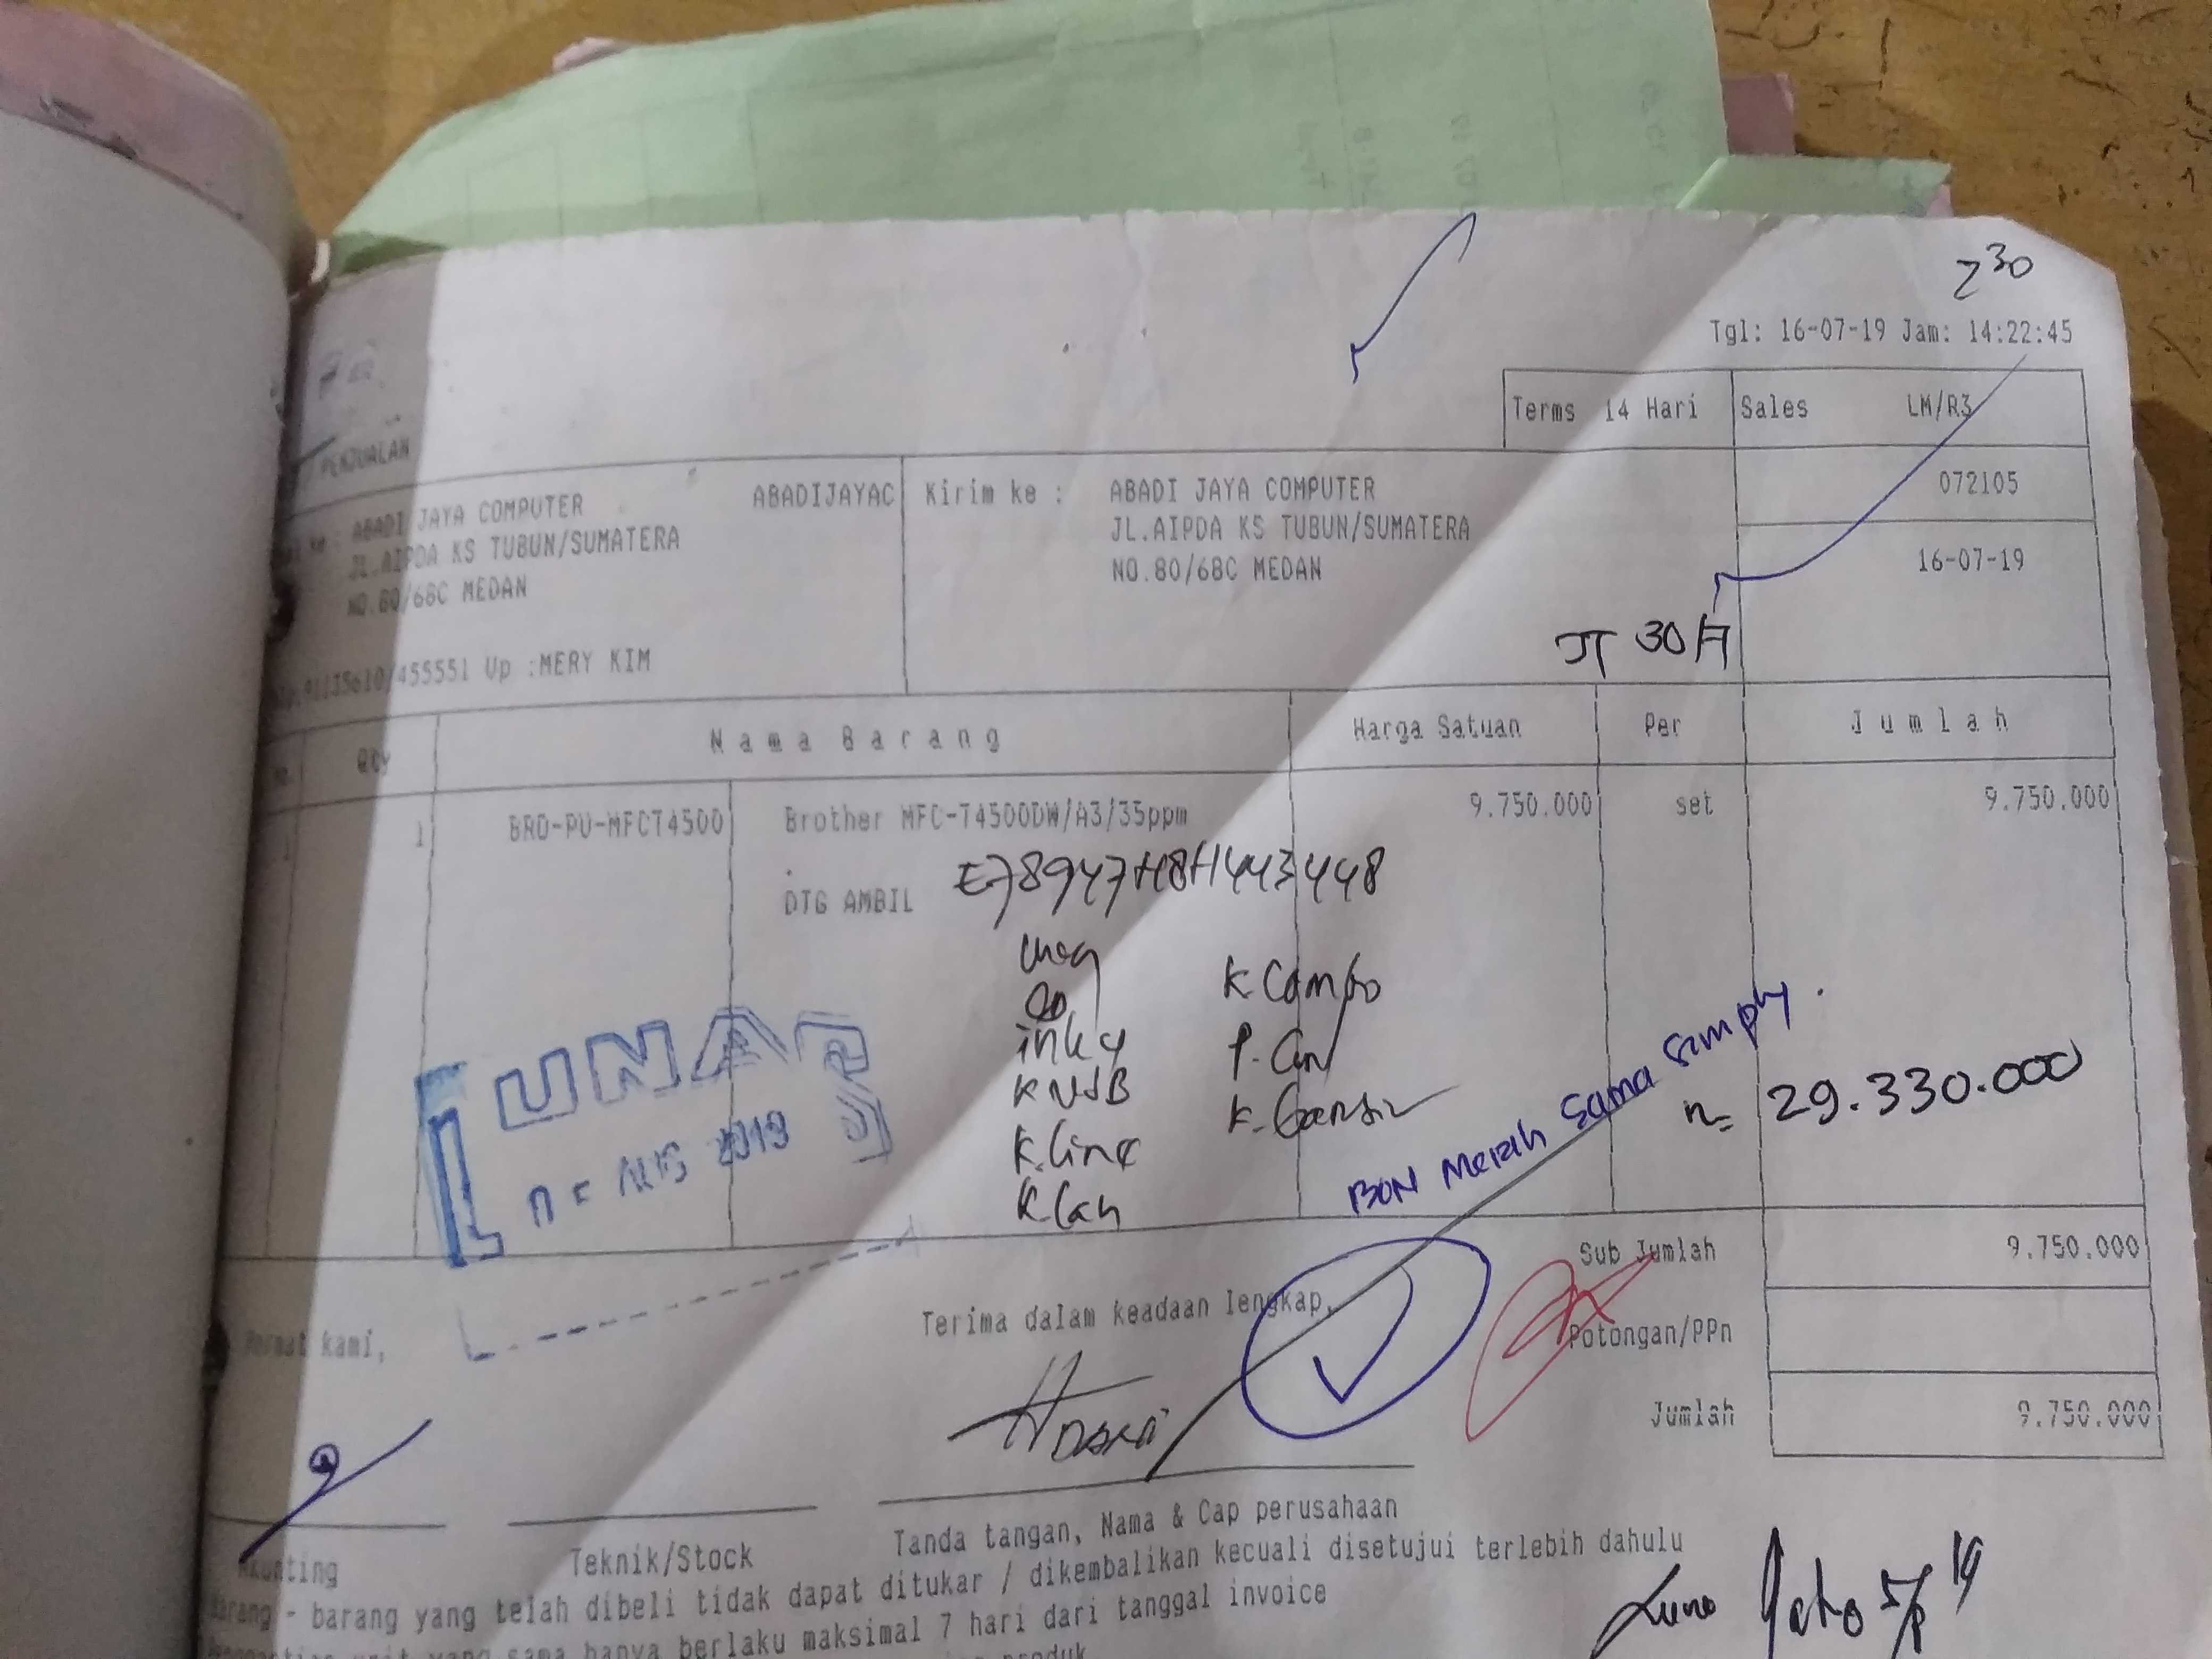 Z 30
Tgl: 16-07-19 Jam: 14:22:45
Terms 14 Hari Sales LM/R3
PENJUALAN
072105
ABADI JAYA COMPUTER ABADIJAYAC Kirim ke : ABADI JAYA COMPUTER
JL.AIPDA KS TUBUN/SUMATERA JL.AIPDA KS TUBUN/SUMATERA
NO.80/68C MEDAN NO.80/68C MEDAN
16-07-19
JT 30 H
/455551 Up :MERY KIM
Qty Nama Barang Harga Satuan Per Jumlah
1 1 BRO-PU-MFCT4500 Brother MFC-T4500DW/A3/35ppm 9.750.000 set 9.750.000
.
DTG AMBIL E78947H8H443448
K Combo
inky
K USB
K. line
BON Merah Sama Simply.
29.330.000
LUNAS
AUG 2019
Sub Jumlah 9.750.000
Hormat kami, Terima dalam keadaan lengkap,
Potongan/PPn
Jumlah 9.750.000
Akunting Teknik/Stock Tanda tangan, Nama & Cap perusahaan
Barang - barang yang telah dibeli tidak dapat ditukar / dikembalikan kecuali disetujui terlebih dahulu
unit yang sama hanya berlaku maksimal 7 hari dari tanggal invoice
produk